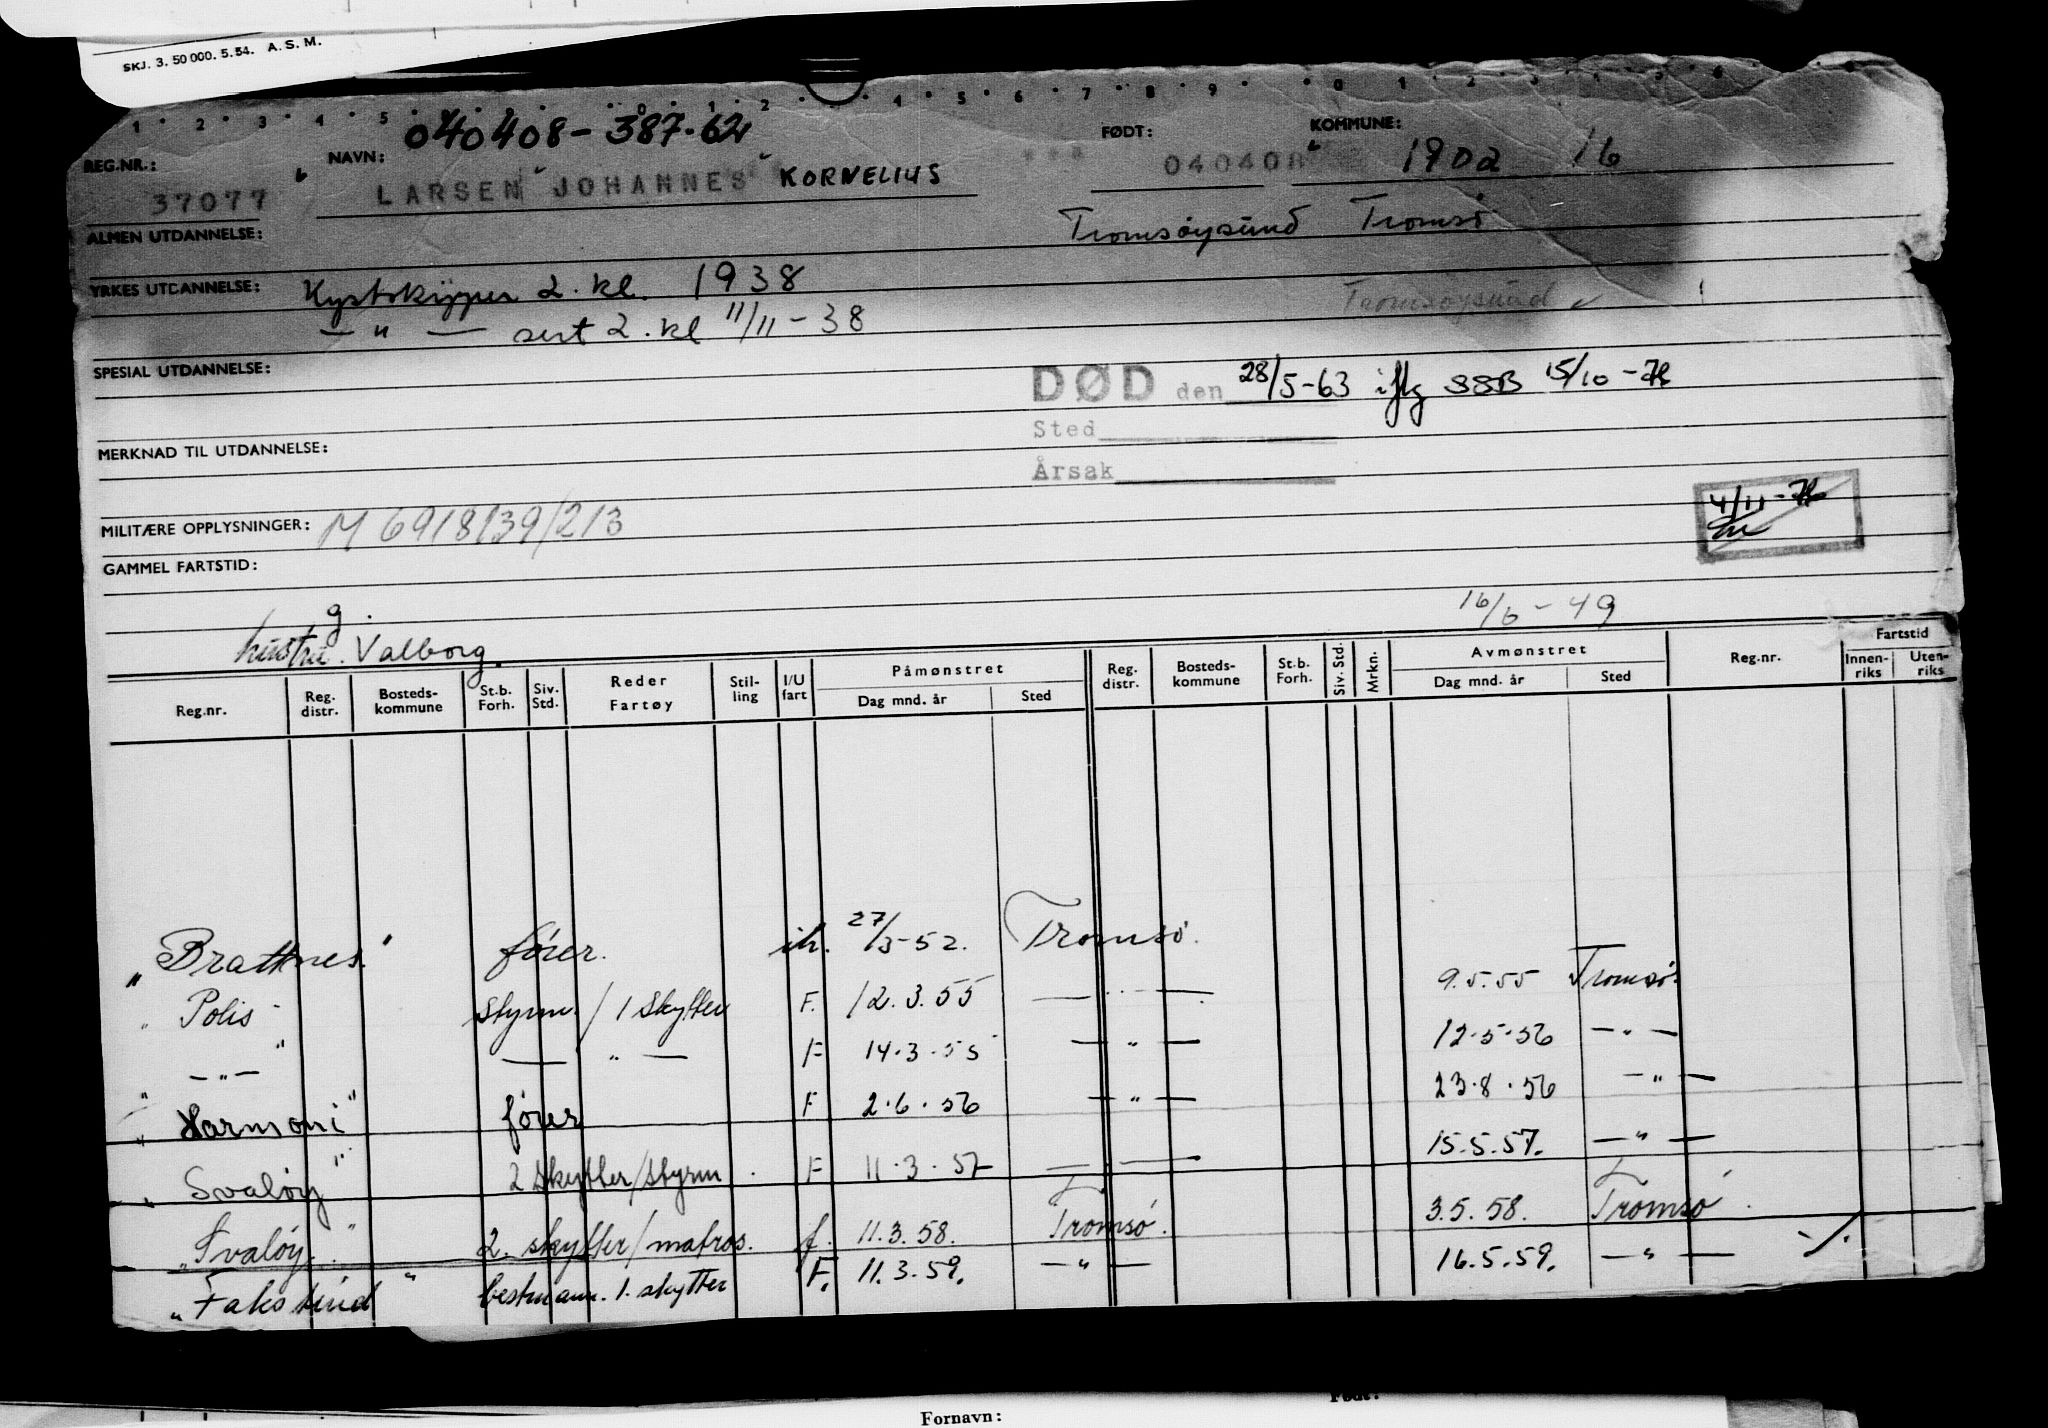 SKJ. 3. 50 000. 5. 54. A. S. M.
1 2 3 4 5 0 1 2 4 5 6 7 8 9 0 1 2 3 4 5 6
040408-387.62
REG.NR.: NAVN: FØDT: KOMMUNE:
37077 LARSEN "JOHANNES" KORNELIUS 040408 1902 16
ALMEN UTDANNELSE: Tromsøysund Tromsø
YRKES UTDANNELSE: Kystskipper 2. kl. 1938 Tromsøysund
— " — sert 2. kl 11/11-38
SPESIAL UTDANNELSE:
DØD den 28/5-63 iflg SSB 15/10-78
Sted
MERKNAD TIL UTDANNELSE:
Årsak
4/11-78
MILITÆRE OPPLYSNINGER: M 6918/39/213
GAMMEL FARTSTID:
g. 16/6-49
hustru. Valborg.
Reg.nr. Reg. distr. Bosteds-kommune St.b. Forh. Siv. Std. Reder Fartøy Stil-ling I/U fart Påmønstret Dag mnd. år Sted Reg. distr. Bosteds-kommune St.b. Forh. Siv. Std. Mrkn. Avmønstret Dag mnd. år Sted Reg.nr. Fartstid Innen-riks Uten-riks
"Brattnes" fører. ih. 27/3-52. Tromsø.
"Polis" styrm. / 1 skytter F. 12.3.55 — " — 9.5.55 Tromsø.
" — " — " — " — F 14.3.55 — " — 12.5.56 — " —
"Harmoni" fører F 2.6.56 — " — 23.8.56 — " —
"Svaløy" 2 skytter/styrm. F 11.3.57 — " — 15.5.57. — " —
"Svaløy" 2. skytter/matros. f. 11.3.58. Tromsø. 3.5.58. Tromsø.
"Fakstind" bestmann. 1. skytter F. 11.3.59. — " — 16.5.59. — " — -/.
Fornavn: Født: